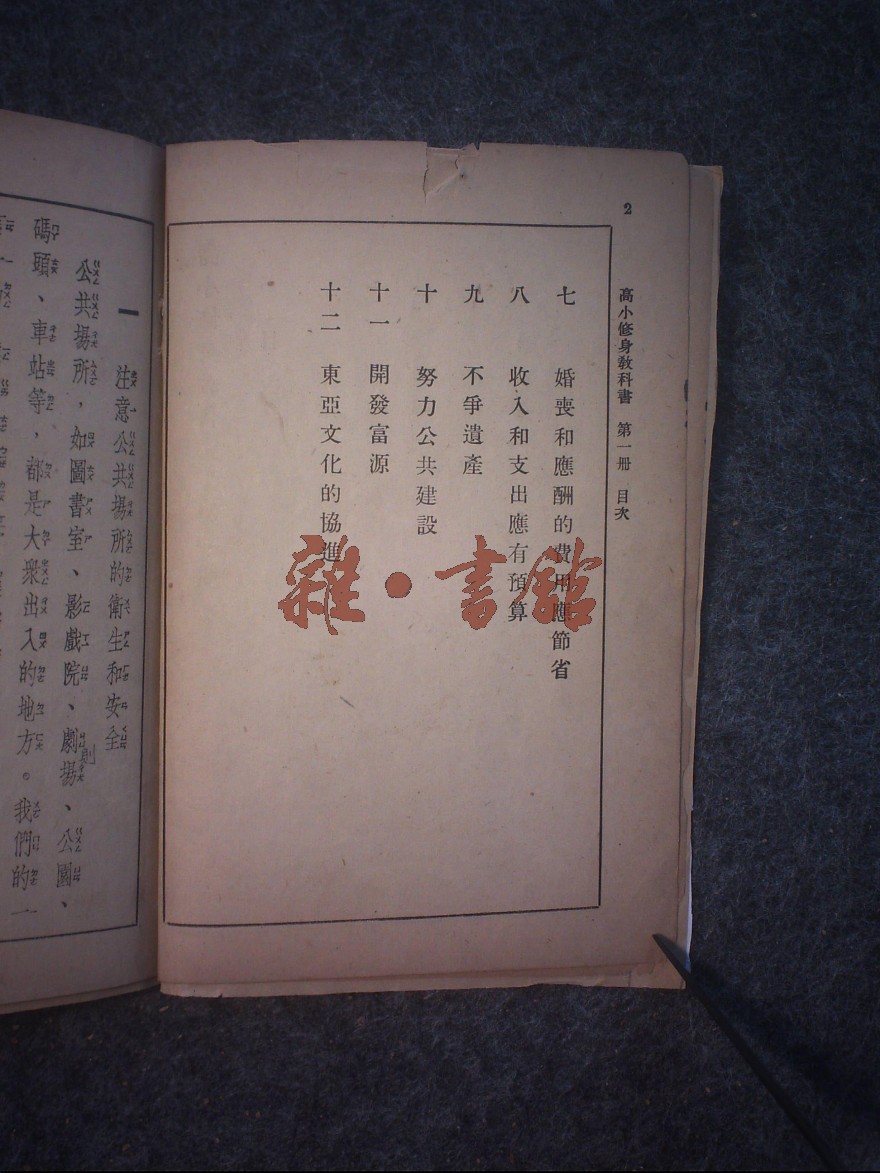 2
高小修身教科書　第一冊　目次
七　婚喪和應酬的費用應節省
八　收入和支出應有預算
九　不爭遺產
十　努力公共建設
十一　開發富源
十二　東亞文化的協進
雜·書館
一　注意公共場所的衛生和安全
公共場所，如圖書室、影戲院、劇場、公園、
碼頭、車站等，都是大衆出入的地方。我們的一